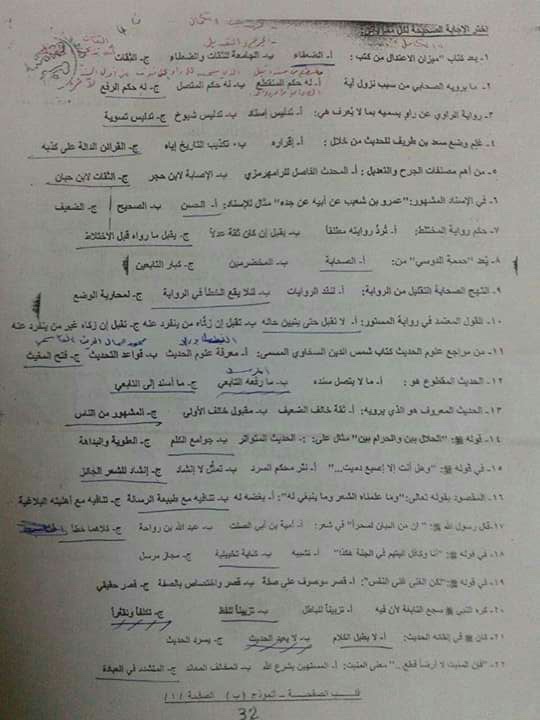 اختر الإجابة الصحيحة لكل مما يأتي:
١- يعد كتاب "ميزان الاعتدال من كتب: أ- الضعفاء ب- الجامعة للثقات والضعفاء ج- الثقات
٢- ما يرويه الصحابي من سبب نزول آية أ- له حكم المنقطع ب- له حكم المتصل ج- له حكم الرفع
٣- رواية الراوي عن راو يسميه بما لا يُعرف هي: أ- تدليس إسناد ب- تدليس شيوخ ج- تدليس تسوية
٤- عُلِم وضع سعد بن طريف للحديث من خلال: أ- إقراره ب- تكذيب التاريخ إياه ج- القرائن الدالة على كذبه
٥- من أهم مصنفات الجرح والتعديل: أ- المحدث الفاصل للرامهرمزي ب- الإصابة لابن حجر ج- الثقات لابن حبان
٦- في الإسناد المشهور: "عمرو بن شعيب عن أبيه عن جده" مثال للإسناد: أ- الحسن ب- الصحيح ج- الضعيف
٧- حكم رواية المختلط: أ- تُردُّ روايته مطلقاً ب- يقبل إن كان ثقة عدلاً ج- يقبل ما رواه قبل الاختلاط
٨- يُعد "حممة الدوسي" من: أ- الصحابة ب- المخضرمين ج- كبار التابعين
٩- انتهج الصحابة التقليل من الرواية: أ- لنقد الروايات ب- لئلا يقع الخطأ في الرواية ج- لمحاربة الوضع
١٠- القول المعتمد في رواية المستور: أ- لا تقبل حتى يتبين حاله ب- تقبل إن زكَّاه من ينفرد عنه ج- تقبل إن زكاه غير من ينفرد عنه
١١- من مراجع علوم الحديث كتاب شمس الدين السخاوي المسمى: أ- معرفة علوم الحديث ب- قواعد التحديث ج- فتح المغيث
١٢- الحديث المقطوع هو: أ- ما لا يتصل سنده ب- ما رفعه التابعي ج- ما أسند إلى التابعي
١٣- الحديث المعروف هو الذي يرويه: أ- ثقة خالف الضعيف ب- مقبول خالف الأولى ج- المشهور من الناس
١٤- قوله ﷺ: "الحلال بين والحرام بين" مثال على: أ- الحديث المتواتر ب- جوامع الكلم ج- العفوية والبداهة
١٥- في قوله ﷺ: "وهل أنت إلا إصبع دميت..." أ- نثر محكم السرد ب- تمثُّل لا إنشاد ج- إنشاد للشعر الجائز
١٦- المقصود بقوله تعالى: "وما علمناه الشعر وما ينبغي له": أ- بغضه له ب- تنافيه مع طبيعة الرسالة ج- تنافيه مع أهليته البلاغية
١٧- قال رسول الله ﷺ: " إن من البيان لسحراً" في شعر: أ- أمية بن أبي الصلت ب- عبد الله بن رواحة ج- كلاهما خطأ
١٨- في قوله ﷺ: "أنا وكافل اليتيم في الجنة هكذا" أ- تشبيه ب- كناية تخييلية ج- مجاز مرسل
١٩- في قوله ﷺ: "لكن الغنى غنى النفس": أ- قصر موصوف على صفة ب- قصر واختصاص بالصفة ج- قصر حقيقي
٢٠- كره النبي ﷺ سجع النابغة لأن فيه أ- تزييفاً للباطل ب- تزييناً للفظ ج- تكلفاً وتقعراً
٢١- كان ﷺ في إلقائه الحديث: أ- لا يطيل الكلام ب- لا يعيد الحديث ج- يسرد الحديث
٢٢- "فإن المنبت لا أرضاً قطع .." معنى المنبت: أ- المستهين بشرع الله ب- المخالف المعاند ج- المتشدد في العبادة
قلب الصفحة - النموذج (ب) الصفحة (١)
32